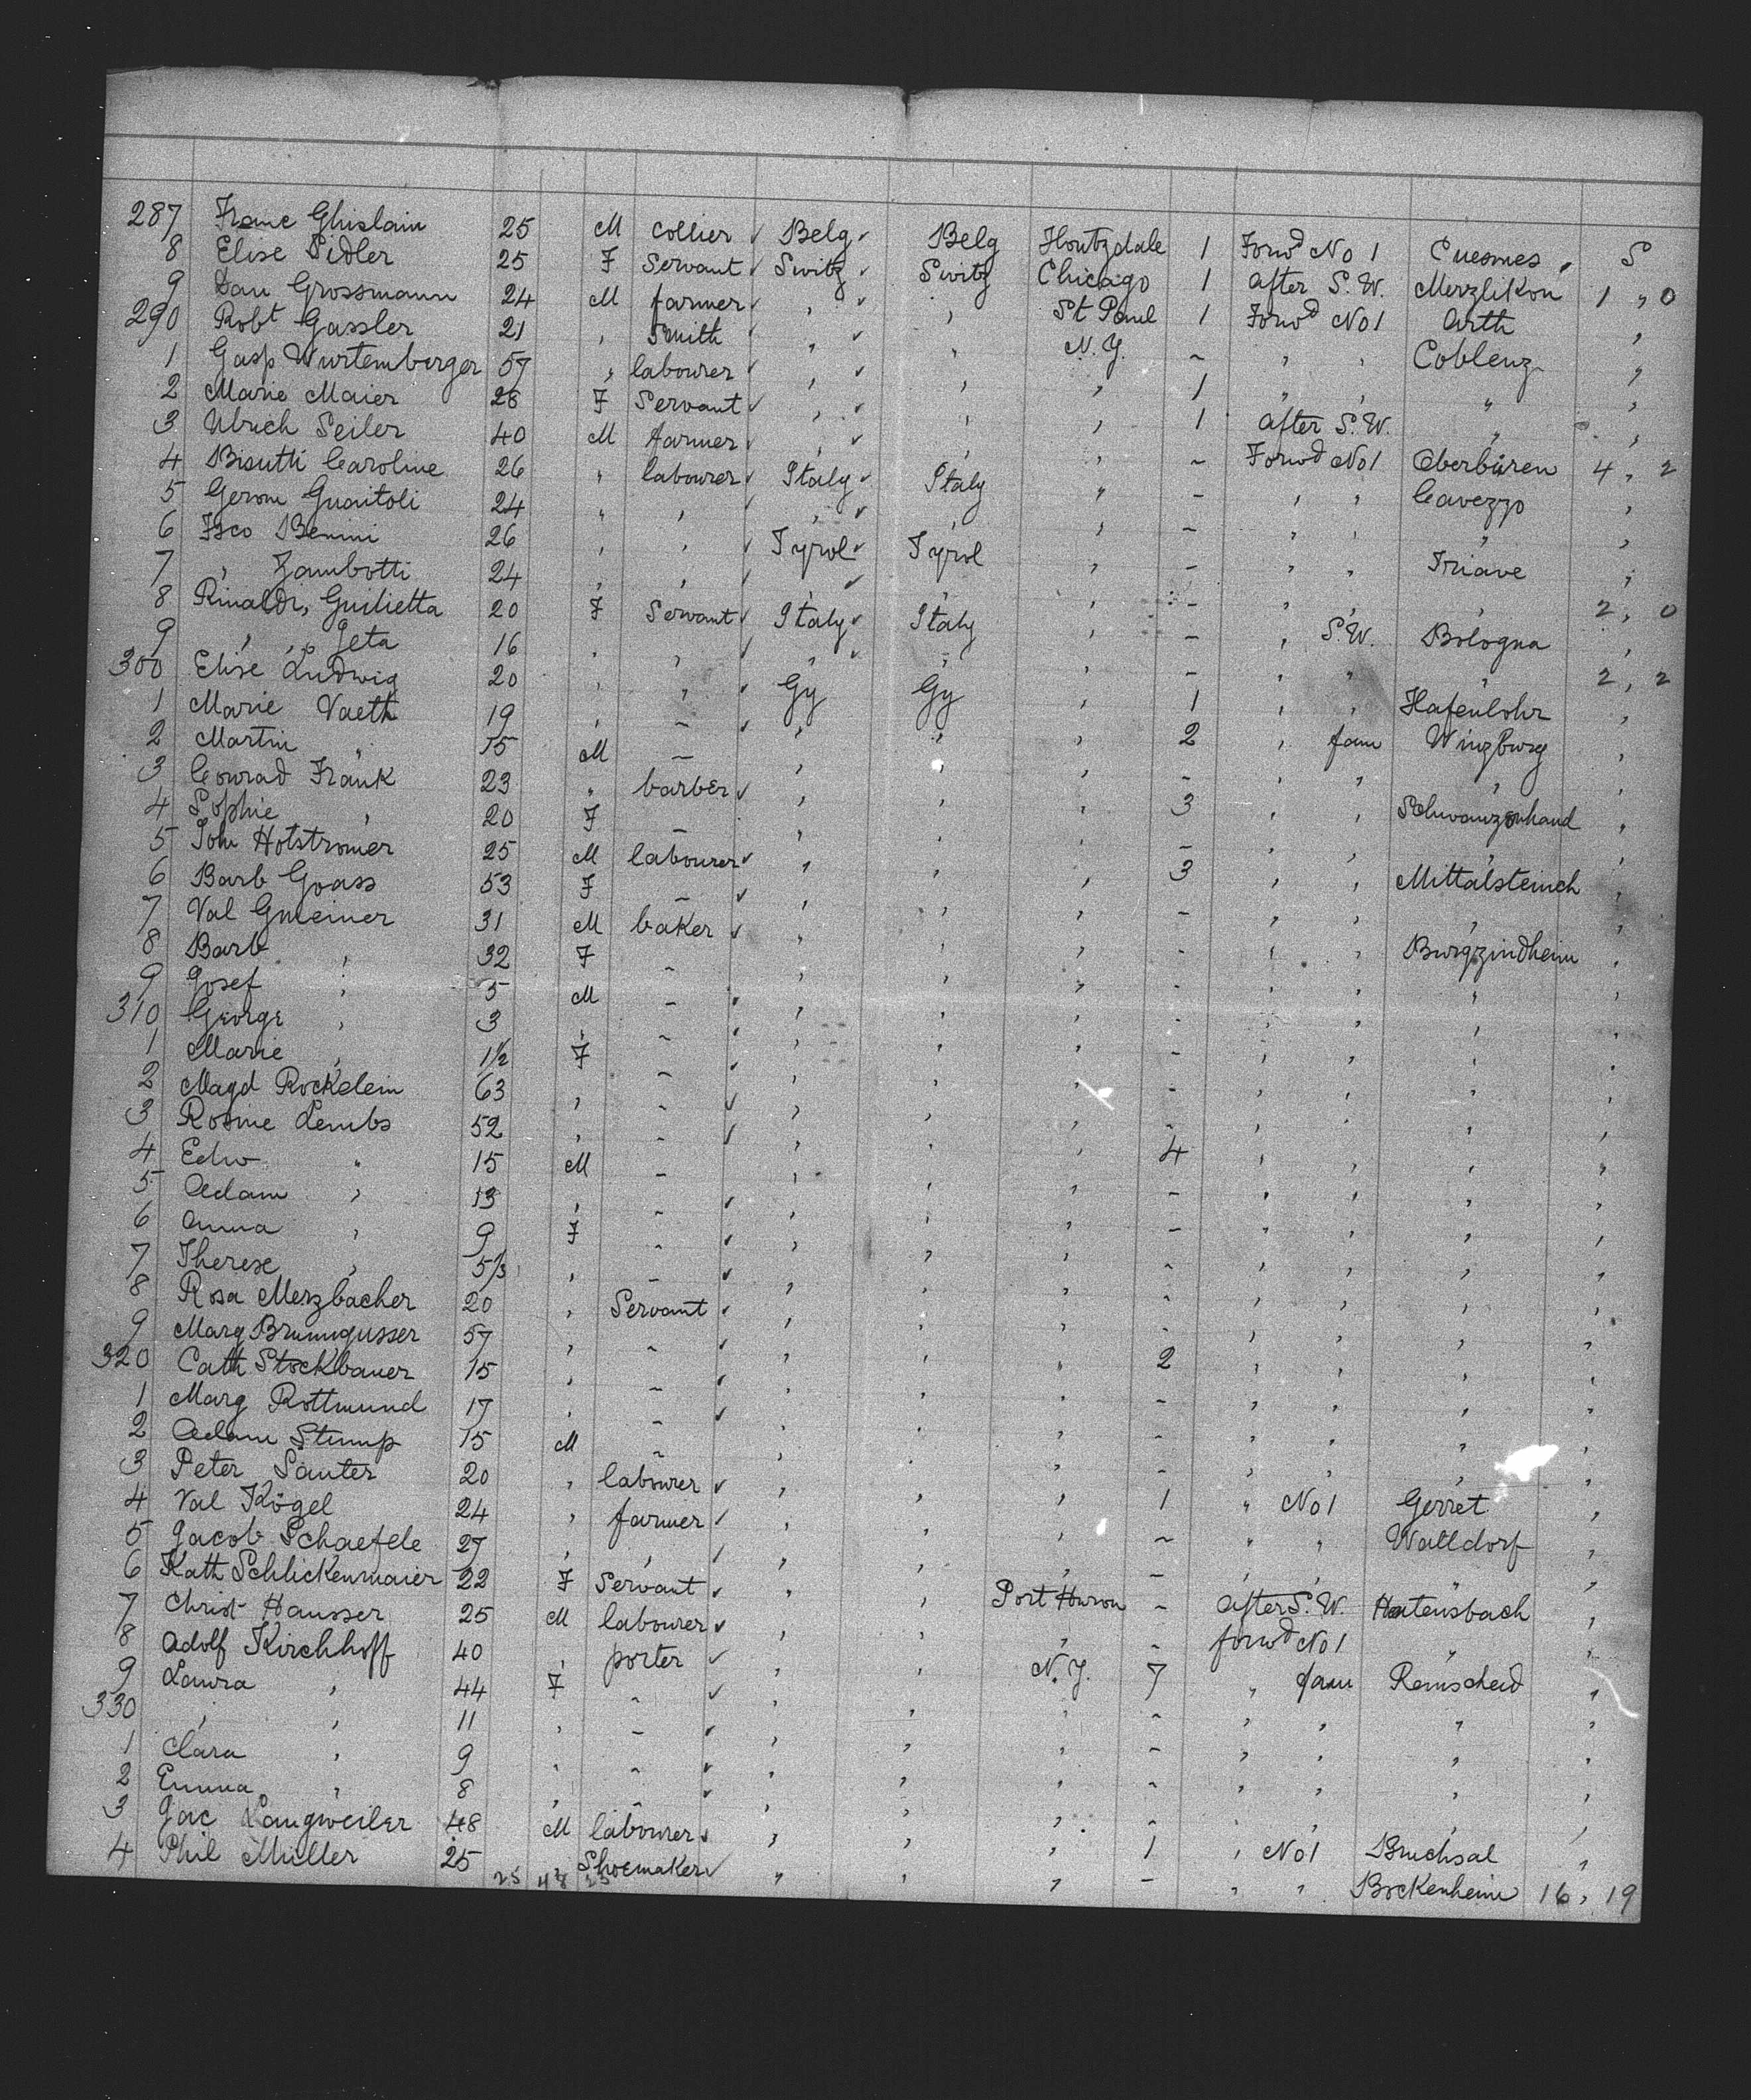 287 Franc Ghislain 25 M Collier ✓ Belg ✓ Belg Houtzdale 1 Forwd No 1 Cuesmes „ S
8 Elise Sidler 25 F Servant ✓ Switz ✓ Switz Chicago 1 after S.W. Merzlikon 1 „ 0
9 Dan Grossmann 24 M farmer ✓ „ ✓ „ St Paul 1 Forwd No 1 Arth „
290 Robt Gassler 21 „ Smith „ ✓ „ N.Y. ~ „ „ Coblenz „
1 Gasp Wurtemberger 57 „ labourer ✓ „ ✓ „ „ 1 „ „ „ „
2 Marie Maier 28 F Servant ✓ „ ✓ „ „ 1 after S.W. „ „
3 Ulrich Seiler 40 M farmer ✓ „ ✓ „ „ ~ Forwd No 1 Oberbüren 4 „ 2
4 Bisutti Caroline 26 „ labourer ✓ Italy ✓ Italy „ - „ „ Cavezzo „
5 Gerom Guaitoli 24 „ „ „ ✓ „ „ - „ „ „ „
6 Fsco Benini 26 „ „ ✓ Tyrol ✓ Tyrol „ - „ „ Triave „
7 „ Zambotti 24 „ „ ✓ „ ✓ „ „ - „ „ „ 2 „ 0
8 Rinaldi, Guilietta 20 F Servant ✓ Italy ✓ Italy „ - „ S.W. Bologna „
9 „ „ Geta 16 „ „ ✓ „ ✓ „ „ - „ „ „ 2 „ 2
300 Elise Ludwig 20 „ „ ✓ Gy Gy „ 1 „ „ Hafenlohr „
1 Marie Vaeth 19 „ - ✓ „ „ „ 2 „ fam Winzburg „
2 Martin „ 15 M - „ „ „ - „ „ „ „
3 Conrad Frank 23 „ barber ✓ „ „ „ 3 „ „ „
4 Sophie „ 20 F - „ „ „ - „ „ „ „
5 John Hotstromer 25 M labourer ✓ „ „ „ 3 „ „ Mittalsteinch „
6 Barb Goass 53 F - ✓ „ „ „ - „ „ „ „
7 Val Gmeiner 31 M baker ✓ „ „ „ - „ „ Burgzindheim „
8 Barb „ 32 F - „ „ „ - „ „ „ „
9 Josef „ 5 M - ✓ „ „ „ - „ „ „ „
310 George „ 3 „ - ✓ „ „ „ - „ „ „ „
1 Marie „ 1½ F - ✓ „ „ „ - „ „ „ „
2 Magd Rockelein 63 „ - ✓ „ „ „ - „ „ „ „
3 Rosine Lembs 52 „ - ✓ „ „ „ 4 „ „ „ „
4 Edw „ 15 M - „ „ „ - „ „ „ „
5 Adam „ 13 „ - ✓ „ „ „ - „ „ „ „
6 Anna „ 9 F - „ „ „ - „ „ „ „
7 Therese „ 5/3 „ - ✓ „ „ „ - „ „ „ „
8 Rosa Merzbacher 20 „ Servant ✓ „ „ „ - „ „ „ „
9 Marg 57 „ - ✓ „ „ „ 2 „ „ „ „
320 Cath Stockbauer 15 „ - ✓ „ „ „ - „ „ „ „
1 Marg Rottmund 17 „ - ✓ „ „ „ - „ „ „ „
2 Adam Stump 15 M - „ „ „ - „ „ „ „
3 Peter Sauter 20 „ labourer ✓ „ „ „ 1 „ No 1 Gerret „
4 Val Kögel 24 „ farmer ✓ „ „ „ ~ „ „ Walldorf „
5 Jacob Schaefele 27 „ „ ✓ „ „ „ - „ „ „ „
6 Kath Schlickenmaier 22 F Servant ✓ „ „ Port Huron - after S.W. Hatensbach „
7 Christ Hausser 25 M labourer ✓ „ „ „ - forwd No 1 „ „
8 Adolf Kirchhoff 40 „ porter ✓ „ „ N.Y. 7 „ fam Remscheid „
9 Laura „ 44 F - ✓ „ „ „ - „ „ „ „
330 „ „ 11 „ - ✓ „ „ „ - „ „ „ „
1 Clara „ 9 „ - ✓ „ „ „ - „ „ „ „
2 Emma „ 8 „ - ✓ „ „ „ - „ „ „ „
3 Jac Langweiler 48 M labourer ✓ „ „ „ 1 „ No 1 Bruchsal „
4 Phil Müller 25 Shoemaker ✓ „ „ „ - „ „ Bockenheim 16 „ 19
25 48 25